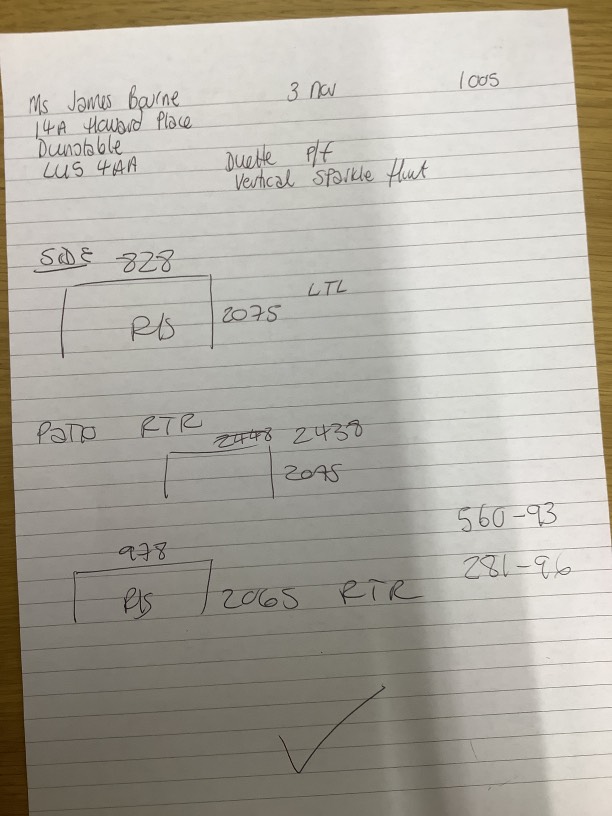 Ms James Bourne 3 Nov 1005
14A Howard Place
Dunstable
LU5 4AA Duette P/f
Vertical Sparkle flint
SIDE 828
R/S 2075 LTL
PATIO RTR 2448 2438
2075
560-93
978 281-96
R/S 2065 RTR